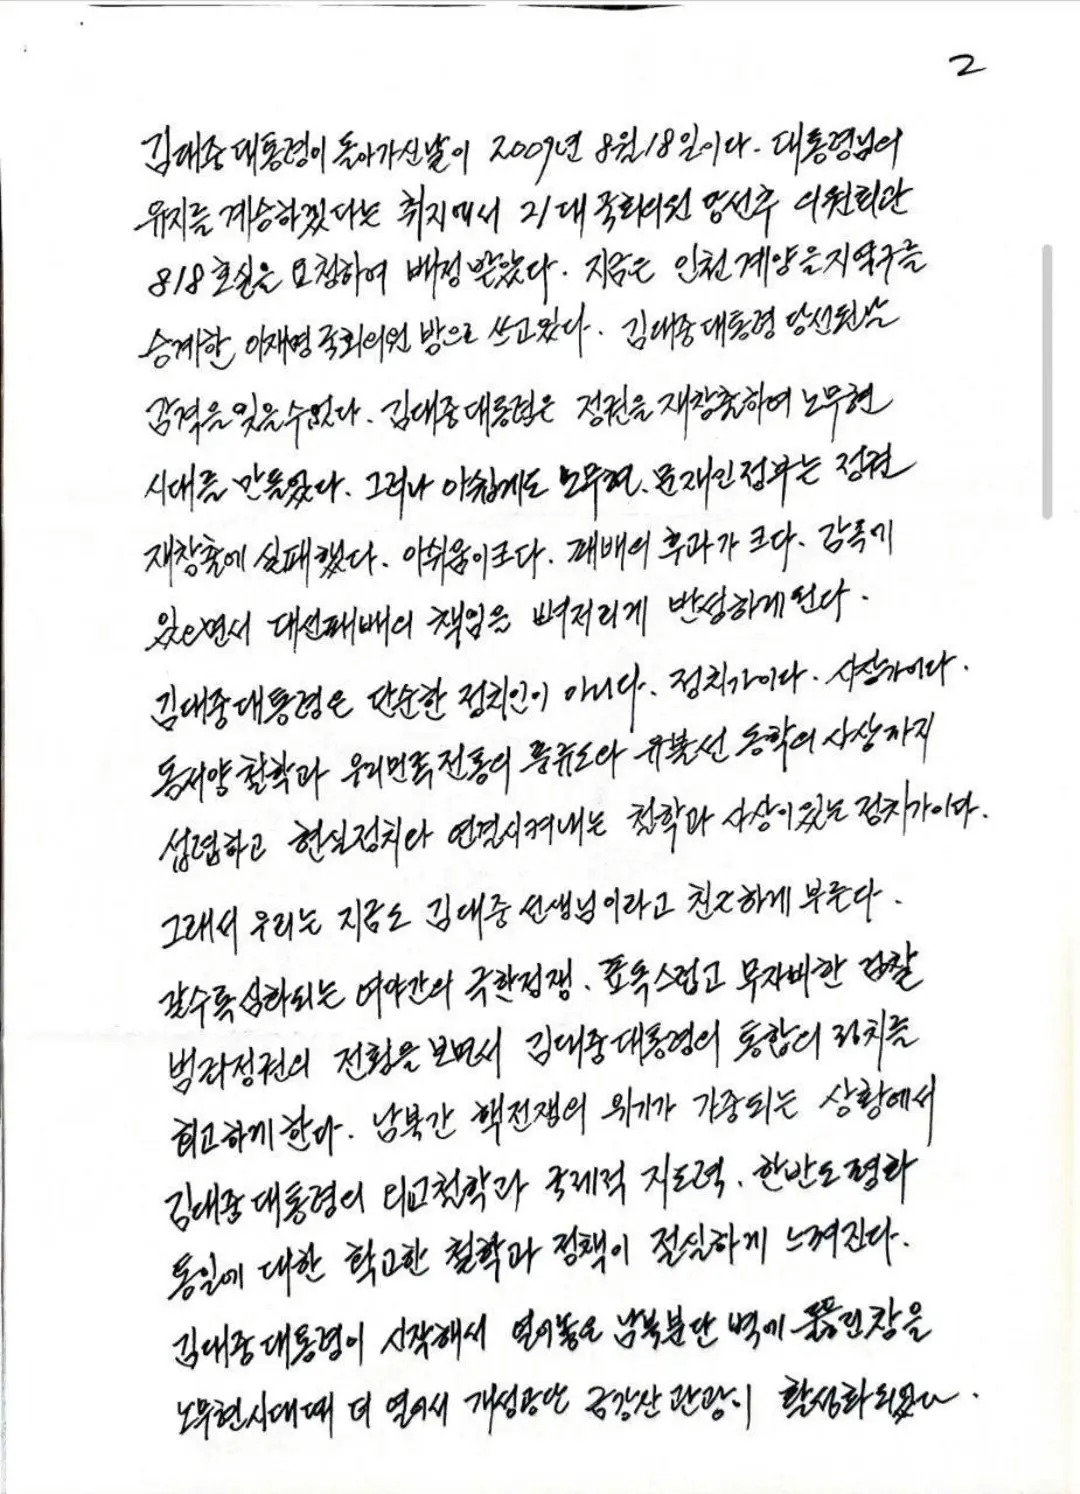 2
김대중대통령이 돌아가신날이 2009년 8월18일이다. 대통령님의
유지를 계승하겠다는 취지에서 21대 국회의원 당선후 의원회관
818호실을 요청하여 배정 받았다. 지금은 인천계양을지역구를
승계한 이재명 국회의원 방으로 쓰고있다. 김대중대통령 당선된날
감격을 잊을수없다. 김대중대통령은 정권을 재창출하여 노무현
시대를 만들었다. 그러나 아쉽게도 노무현.문재인정부는 정권
재창출에 실패했다. 아쉬움이크다. 패배의 후과가 크다. 감옥에
있으면서 대선패배의 책임을 뼈저리게 반성하게된다.
김대중대통령은 단순한 정치인이 아니다. 정치가이다. 사상가이다.
동서양철학과 우리민족전통의 풍류도와 유불선 동학의 사상까지
섭렵하고 현실정치와 연결시켜내는 철학과 사상이있는 정치가이다.
그래서 우리는 지금도 김대중선생님이라고 친근하게 부른다.
갈수록심화되는 여야간의 극한정쟁. 포옥스럽고 무자비한 검찰
범죄정권의 전횡을 보면서 김대중대통령의 통합의 정치를
희고하게한다. 남북간 핵전쟁의 위기가 가중되는 상황에서
김대중대통령의 외교철학과 국제적 지도력. 한반도평화
통일에 대한 확고한 철학과 정책이 절실하게 느껴진다.
김대중대통령이 시작해서 열어놓은 남북분단 벽에 창을
노무현시대때 더 열어서 개성공단 금강산관광이 활성화되었다.